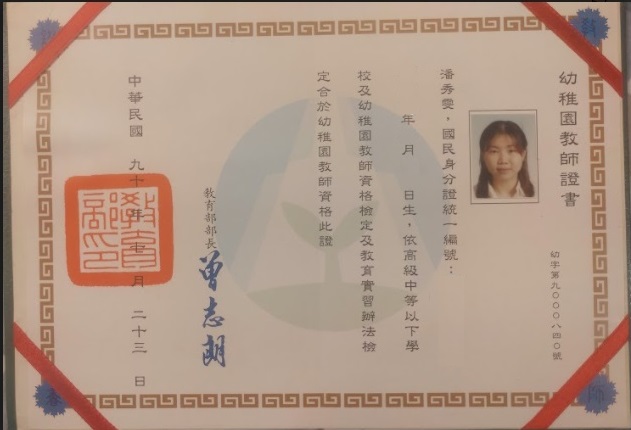 幼稚園教師證書
幼字第九〇〇〇八四〇號
潘秀雯，國民身分證統一編號：
年 月 日生，依高級中等以下學
校及幼稚園教師資格檢定及教育實習辦法檢
定合於幼稚園教師資格此證
教育部部長 曾志朗
中華民國 九十年 月 二十三 日
教育部印